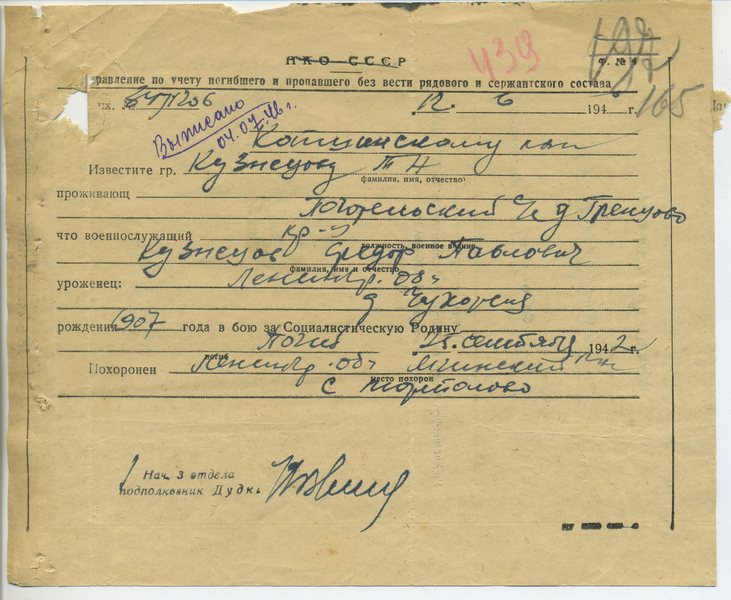 НКО СССР
439
Ф. № 4
равление по учету погибшего и пропавшего без вести рядового и сержантского состава
165
12. 6 1946 г.
Выписано
04.07.46 г.
Известите гр. Кузнецову Т Н
фамилия, имя, отчество)
проживающ
д Гренцово
что военнослужащий кр-ц
должность, военное звание
Кузнецов Федор Павлович
фамилия, имя и отчество
уроженец: Ленингр. обл
д
рождения 1907 года в бою за Социалистическую Родину
Погиб 25. сентября 1942 г.
погиб
Похоронен Ленингр. обл Мгинский р-н
место похорон
с
Нач. 3 отдела
подполковник Дудк